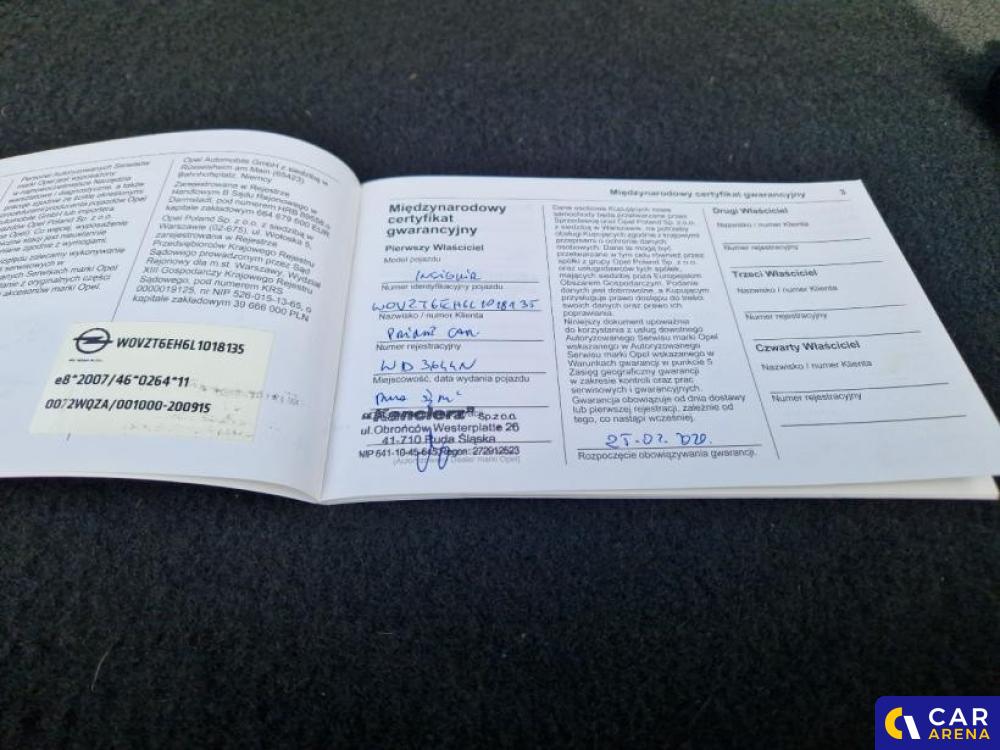 Personel Autoryzowanych Serwisów
marki Opel jest wyposażony
w najnowocześniejsze Narzędzia
warsztatowe i diagnostyczne, a także
Opel Automobile GmbH z siedzibą w
Rüsselsheim am Main (65423)
Bahnhofsplatz, Niemcy
Zarejestrowana w Rejestrze
Handlowym B Sądu Rejonowego w
Darmstadt, pod numerem HRB
kapitale zakładowym 664 679 000 EUR
Opel Poland Sp. z o.o. z siedzibą w
Warszawie (02-675), ul. Wołoska 5,
zarejestrowana w Rejestrze
Przedsiębiorców Krajowego Rejestru
Sądowego prowadzonym przez Sąd
Rejonowy dla m.st. Warszawy, Wydział
XIII Gospodarczy Krajowego Rejestru
Sądowego, pod numerem KRS
0000019125, nr NIP 526-015-13-65, o
kapitale zakładowym 39 666 000 PLN
W0VZT6EH6L1018135
e8*2007/46*0264*11
0072WQZA/001000-200915
Międzynarodowy certyfikat gwarancyjny 3
Międzynarodowy
certyfikat
gwarancyjny
Pierwszy Właściciel
Model pojazdu
Insignia
Numer identyfikacyjny pojazdu
W0VZT6EH6L1018135
Nazwisko / numer Klienta
CAR
Numer rejestracyjny
WD 3644N
Miejscowość, data wydania pojazdu
"Kanclerz" Sp. z o.o.
ul.Obrońców Westerplatte 26
41-710 Ruda Śląska
NIP 641-10-45-645, Regon: 272912523
Dane osobowe Kupujących nowe
samochody będą przetwarzane przez
Sprzedawcę oraz Opel Poland Sp. z o.o.
z siedzibą w Warszawie, na potrzeby
obsługi Kupujących zgodnie z krajowymi
przepisami o ochronie danych
osobowych. Dane te mogą być
przetwarzane w tym celu również przez
spółki z grupy Opel Poland Sp. z o.o.
oraz usługodawców tych spółek,
mających siedzibę poza Europejskim
Obszarem Gospodarczym. Podanie
danych jest dobrowolne, a Kupującym
przysługuje prawo dostępu do treści
swoich danych oraz prawo ich
poprawiania.
Niniejszy dokument upoważnia
do korzystania z usług dowolnego
Autoryzowanego Serwisu marki Opel
wskazanego w Autoryzowanego
Serwisu marki Opel wskazanego w
Warunkach gwarancji w punkcie 5
Zasięg geograficzny gwarancji
w zakresie kontroli oraz prac
serwisowych i gwarancyjnych.
Gwarancja obowiązuje od dnia dostawy
lub pierwszej rejestracji, zależnie od
tego, co nastąpi wcześniej.
25-02.2020.
Rozpoczęcie obowiązywania gwarancji.
Drugi Właściciel
Nazwisko / numer Klienta
Numer rejestracyjny
Trzeci Właściciel
Nazwisko / numer Klienta
Numer rejestracyjny
Czwarty Właściciel
Nazwisko / numer Klienta
Numer rejestracyjny
CAR
ARENA